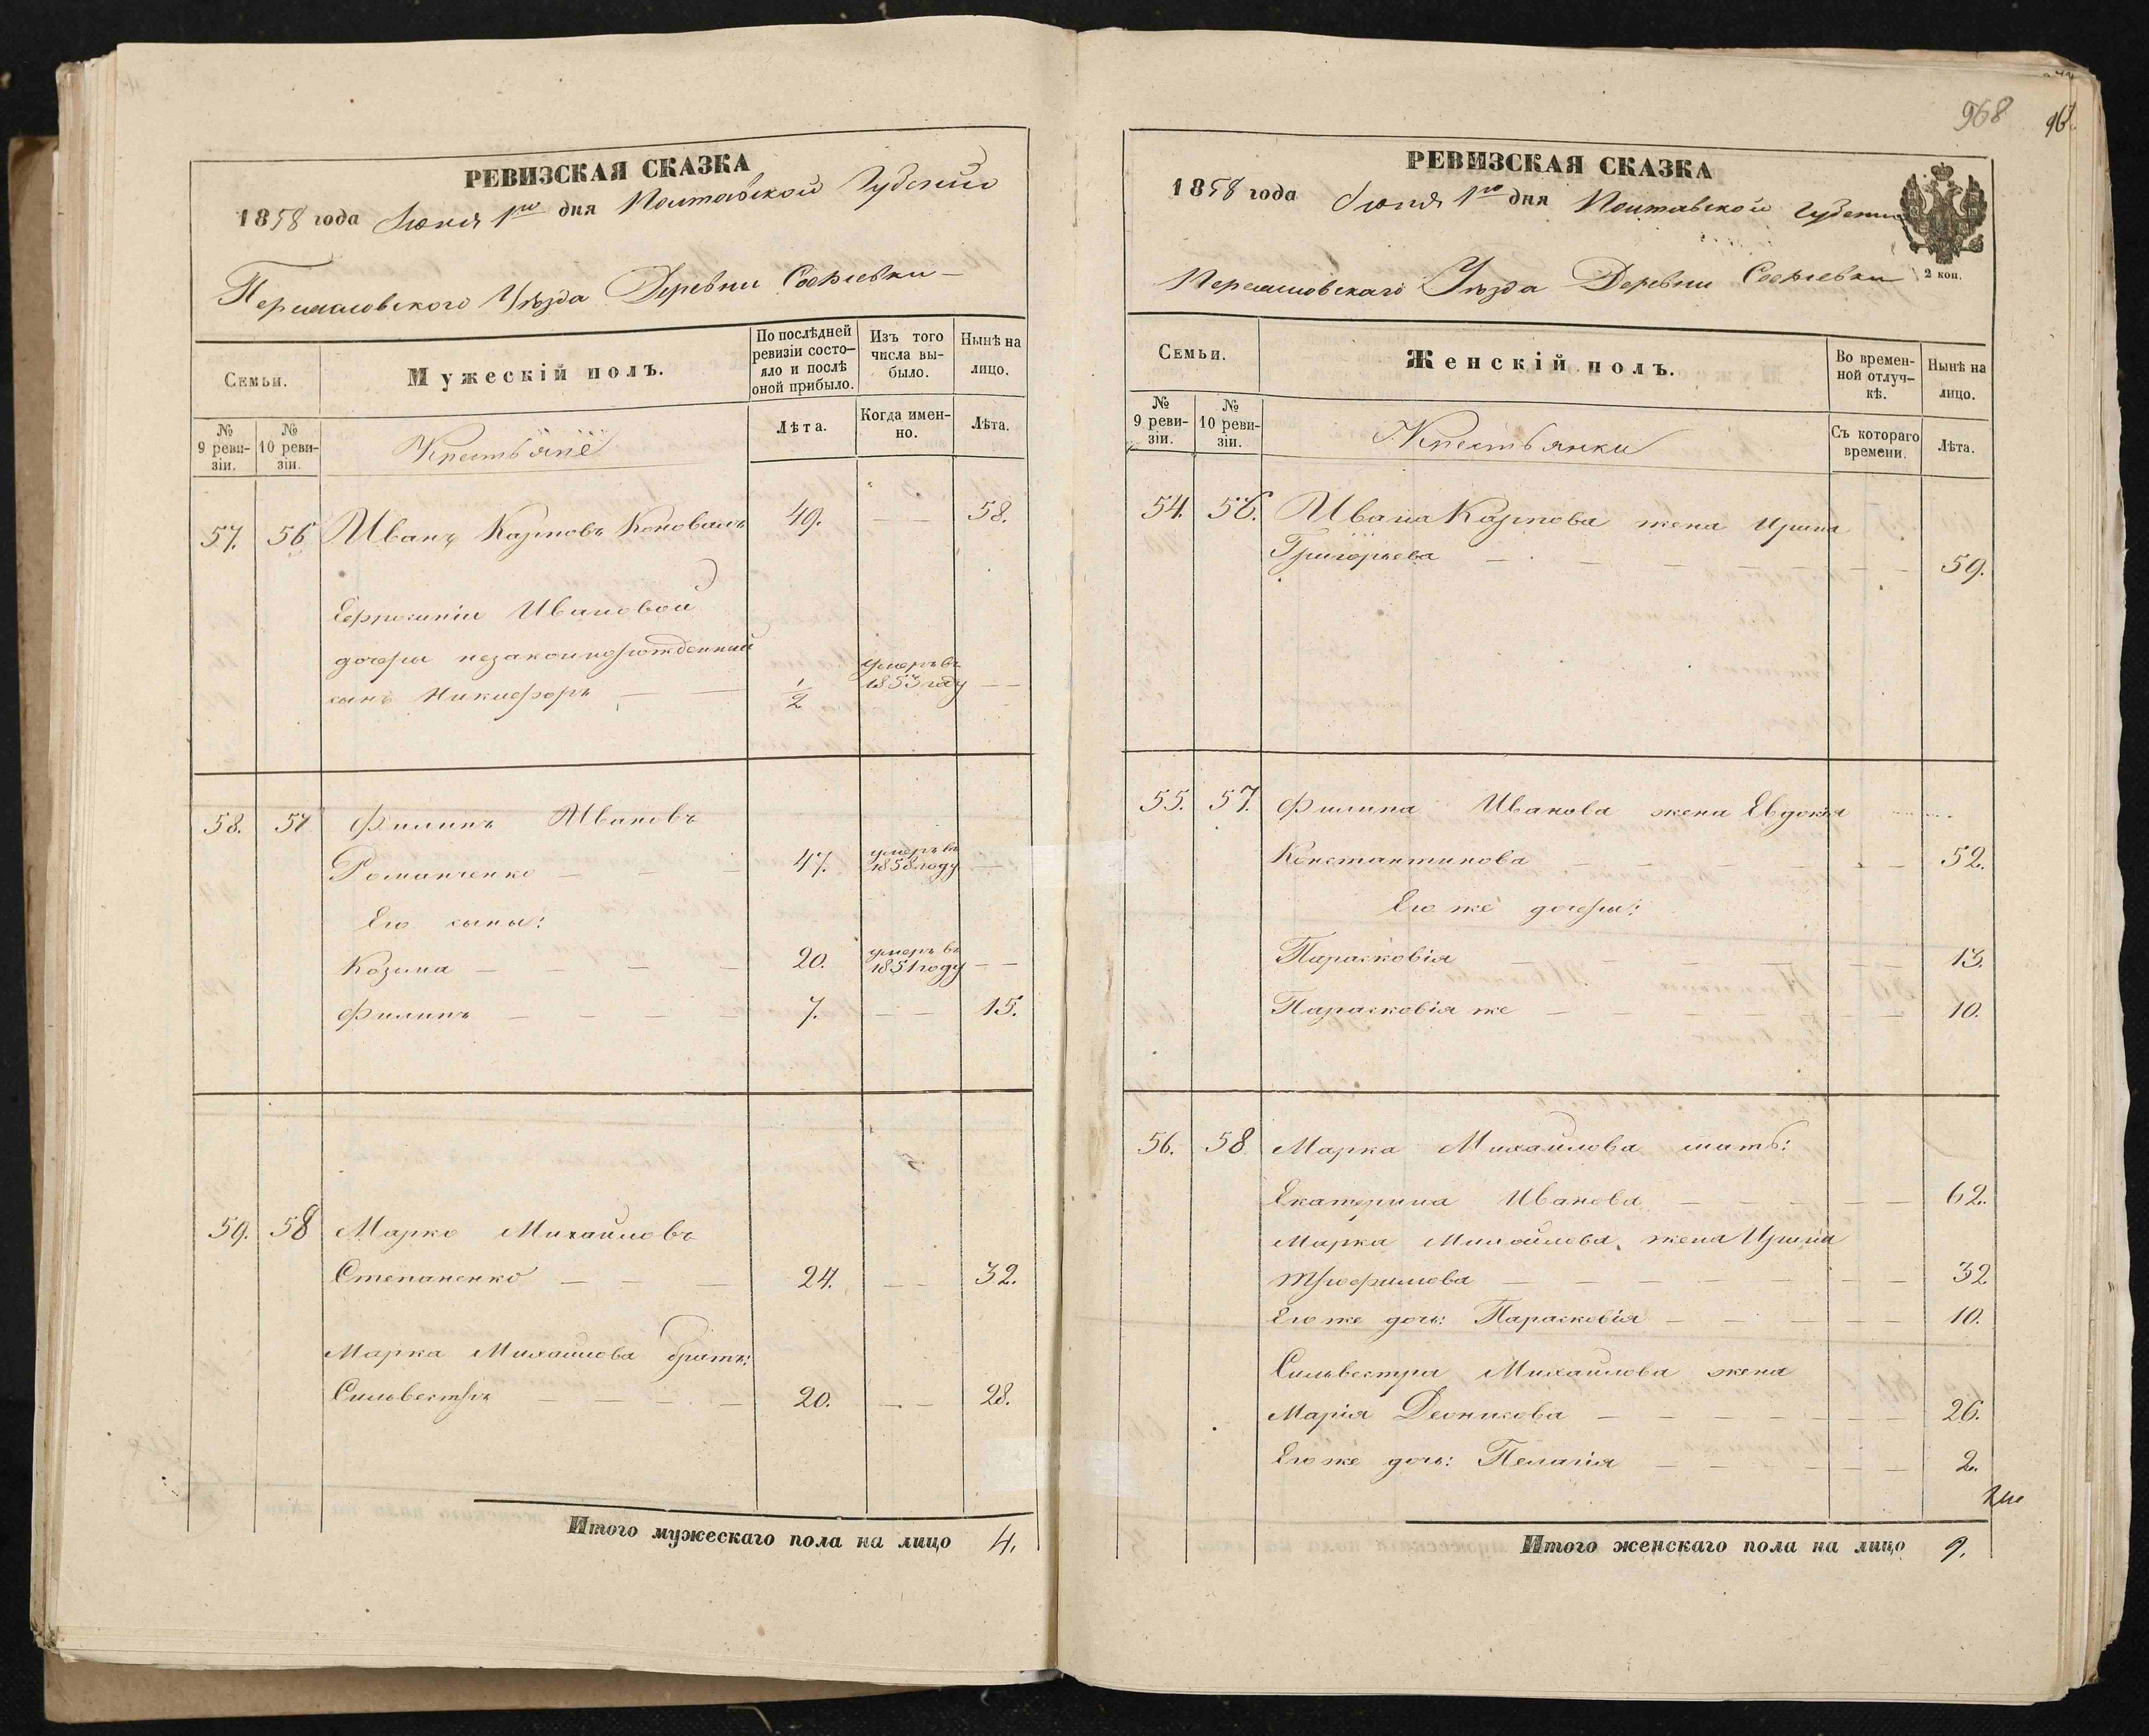 968
96
РЕВИЗСКАЯ СКАЗКА
1858 года Июня 1го дня Полтавской Губерніи
Переяславского Уѣзда Деревни Софіевки
Семьи.
Мужескій полъ.
По послѣдней ревизіи состо-
яло и послѣ оной прибыло.
Изъ того числа вы-
было.
Нынѣ на лицо.
№ 9 реви-
зіи.
№ 10 реви-
зіи.
Крестьяне
Лѣта.
Когда имен-
но.
Лѣта.
57. 56 Иванъ Карповъ Коновалъ 49. — — 58.
Ефросиніи Ивановой
дочери незаконнорожденный
сынъ Никифоръ — — 1/2 умеръ въ 1853 году — —
58. 57 Филипъ Ивановъ
Романченко — — — 47. умеръ въ 1858 году —
Его сыны:
Козьма — — — — 20. умеръ въ 1851 году — —
Филипъ — — — — 7. — — 15.
59. 58 Марко Михайловъ
Степаненко — — — 24. — — 32.
Марка Михайлова братъ:
Сильвестръ — — — — 20. — — 28.
Итого мужескаго пола на лицо 4.
РЕВИЗСКАЯ СКАЗКА
1858 года Июня 1го дня Полтавской Губерніи
2 коп.
Переяславскаго Уѣзда Деревни Софіевки
Семьи.
Женскій полъ.
Во времен-
ной отлуч-
кѣ.
Нынѣ на лицо.
№ 9 реви-
зіи.
№ 10 реви-
зіи.
Крестьянки
Съ котораго времени.
Лѣта.
54. 56. Ивана Карпова жена Ирина
Григорьева — — — — — — — 59.
55. 57. Филипа Иванова жена Евдокія
Константинова — — — — — — 52.
Его же дочери:
Парасковія — — — — — — 13.
Парасковія же — — — — — — 10.
56. 58. Марка Михайлова мать:
Екатерина Иванова — — — — — 62.
Марка Михайлова жена Ирина
Трофимова — — — — — — — 32
Его же дочь: Парасковія — — — — — 10.
Сильвестра Михайлова жена
Марія Деоникова — — — — — — — 26.
Его же дочь: Пелагія — — — — — — 2.
Итого женскаго пола на лицо 9.